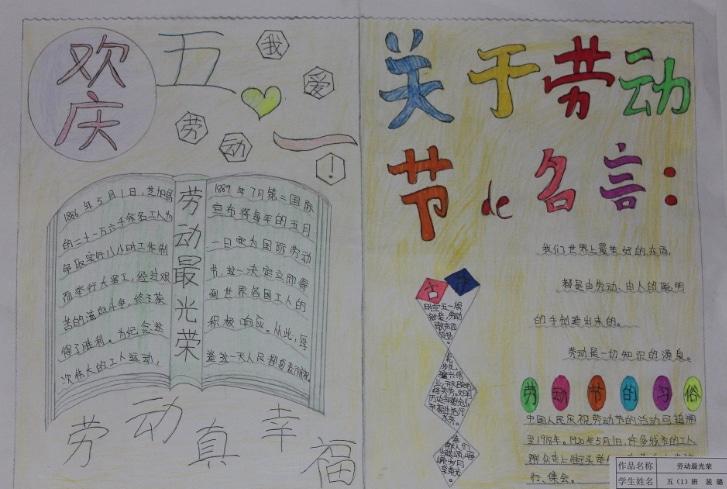 欢庆
五一
我爱劳动!
劳动最光荣
1886年5月1日,芝加哥
的二十一万六千余名工人为
争取实行八小时工作制
而举行大罢工,经过艰
苦的流血斗争,终于获
得了胜利。为纪念这
次伟大的工人运动,
1889年7月第二国际
宣布将每年的五月
一日定为国际劳动
节。这一决定立即得
到世界各国工人的
积极响应。从此,每
逢这一天人民都要
劳动真幸福
关于劳动
节de名言:
我们世界上最美好的东西,
都是由劳动、由人的聪明
的手创造出来的。
劳动是一切知识的源泉。
劳动节的习俗
中国人民庆祝劳动节的活动可追溯
至1918年。1920年5月1日,许多城市的工人
群众走上街头
行、集会。
作品名称 劳动最光荣
学生姓名 五(1)班